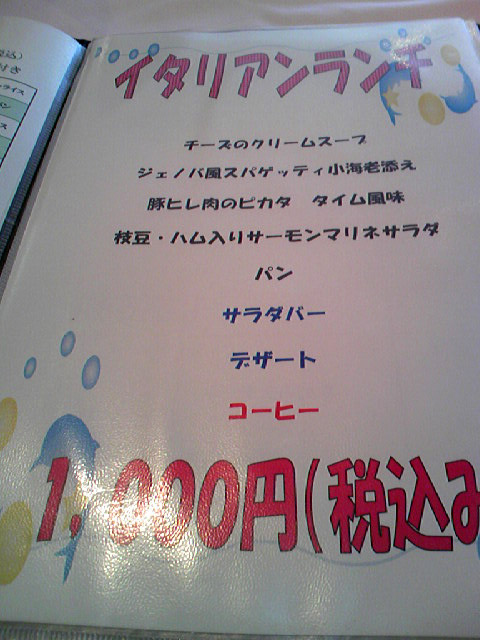 税込)
付き
ライス
パン
ス
イタリアンランチ
チーズのクリームスープ
ジェノバ風スパゲッティ小海老添え
豚ヒレ肉のピカタ タイム風味
枝豆・ハム入りサーモンマリネサラダ
パン
サラダバー
デザート
コーヒー
1,000円(税込み